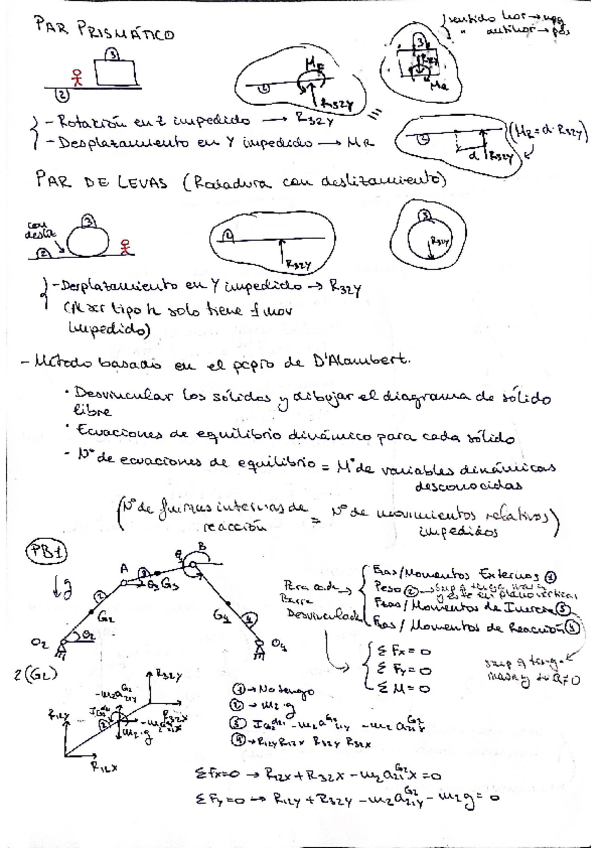 PAR PRISMÁTICO
sentido hor → neg
" antihor → pos
3
2
2
MR
R32Y
3
R32Y
MR
- Rotación en z impedido → R32Y
- Desplazamiento en Y impedido → MR
2
d
R32Y
(MR = d · R32Y)
PAR DE LEVAS (Rodadura con deslizamiento)
con
desliz
2
3
2
R32Y
3
R32Y
- Desplazamiento en Y impedido → R32Y
(Al ser tipo h solo tiene 1 mov
impedido)
- Método basado en el pcpio de D'Alambert.
· Desvincular los sólidos y dibujar el diagrama de sólido
libre
· Ecuaciones de equilibrio dinámico para cada sólido
- Nº de ecuaciones de equilibrio = Nº de variables dinámicas
desconocidas
(Nº de fuerzas internas de = Nº de movimientos relativos)
reacción impedidos
PB1
↓g
A
B
3
G3
θ3
2
G2
θ2
O2
G4
4
O4
Para cada
Barra
Desvinculada
Fzas/Momentos Externos 1
Peso 2
Fzas/Momentos de Inercia 3
Fzas/Momentos de Reacción 4
Σ Fx = 0
Σ Fy = 0
Σ M = 0
2 (G2)
R32Y
R32X
R12Y
R12X
m2·g
1 → No tengo
2 → m2·g
3 IG2·α21 -m2 a21Y G2 -m2 a21X G2
4 → R12Y R12X R32Y R32X
ΣFx=0 → R12X + R32X - m2 a21X G2 = 0
ΣFy=0 → R12Y + R32Y - m2 a21Y G2 - m2g = 0